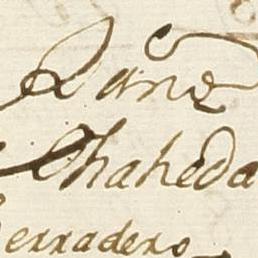 Rañe
Chaheda
erradero